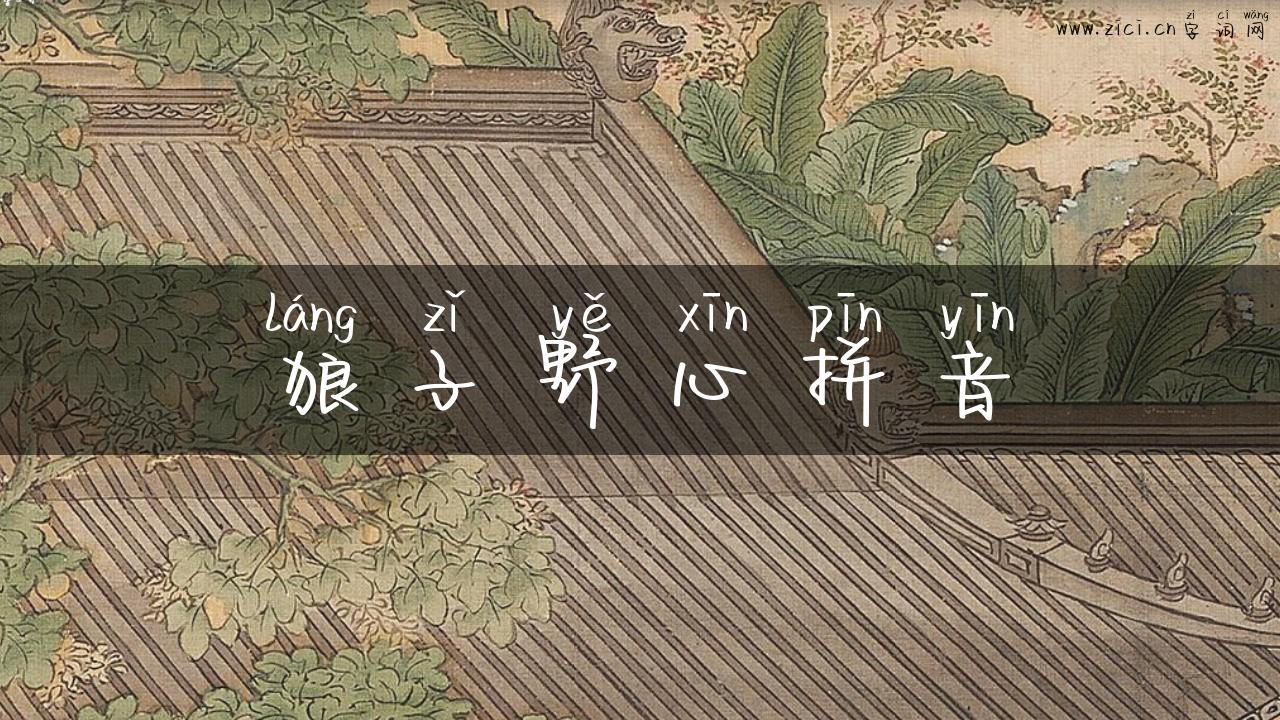 zì cí wǎng
www.zici.cn 字词网
láng zǐ yě xīn pīn yīn
狼子野心拼音